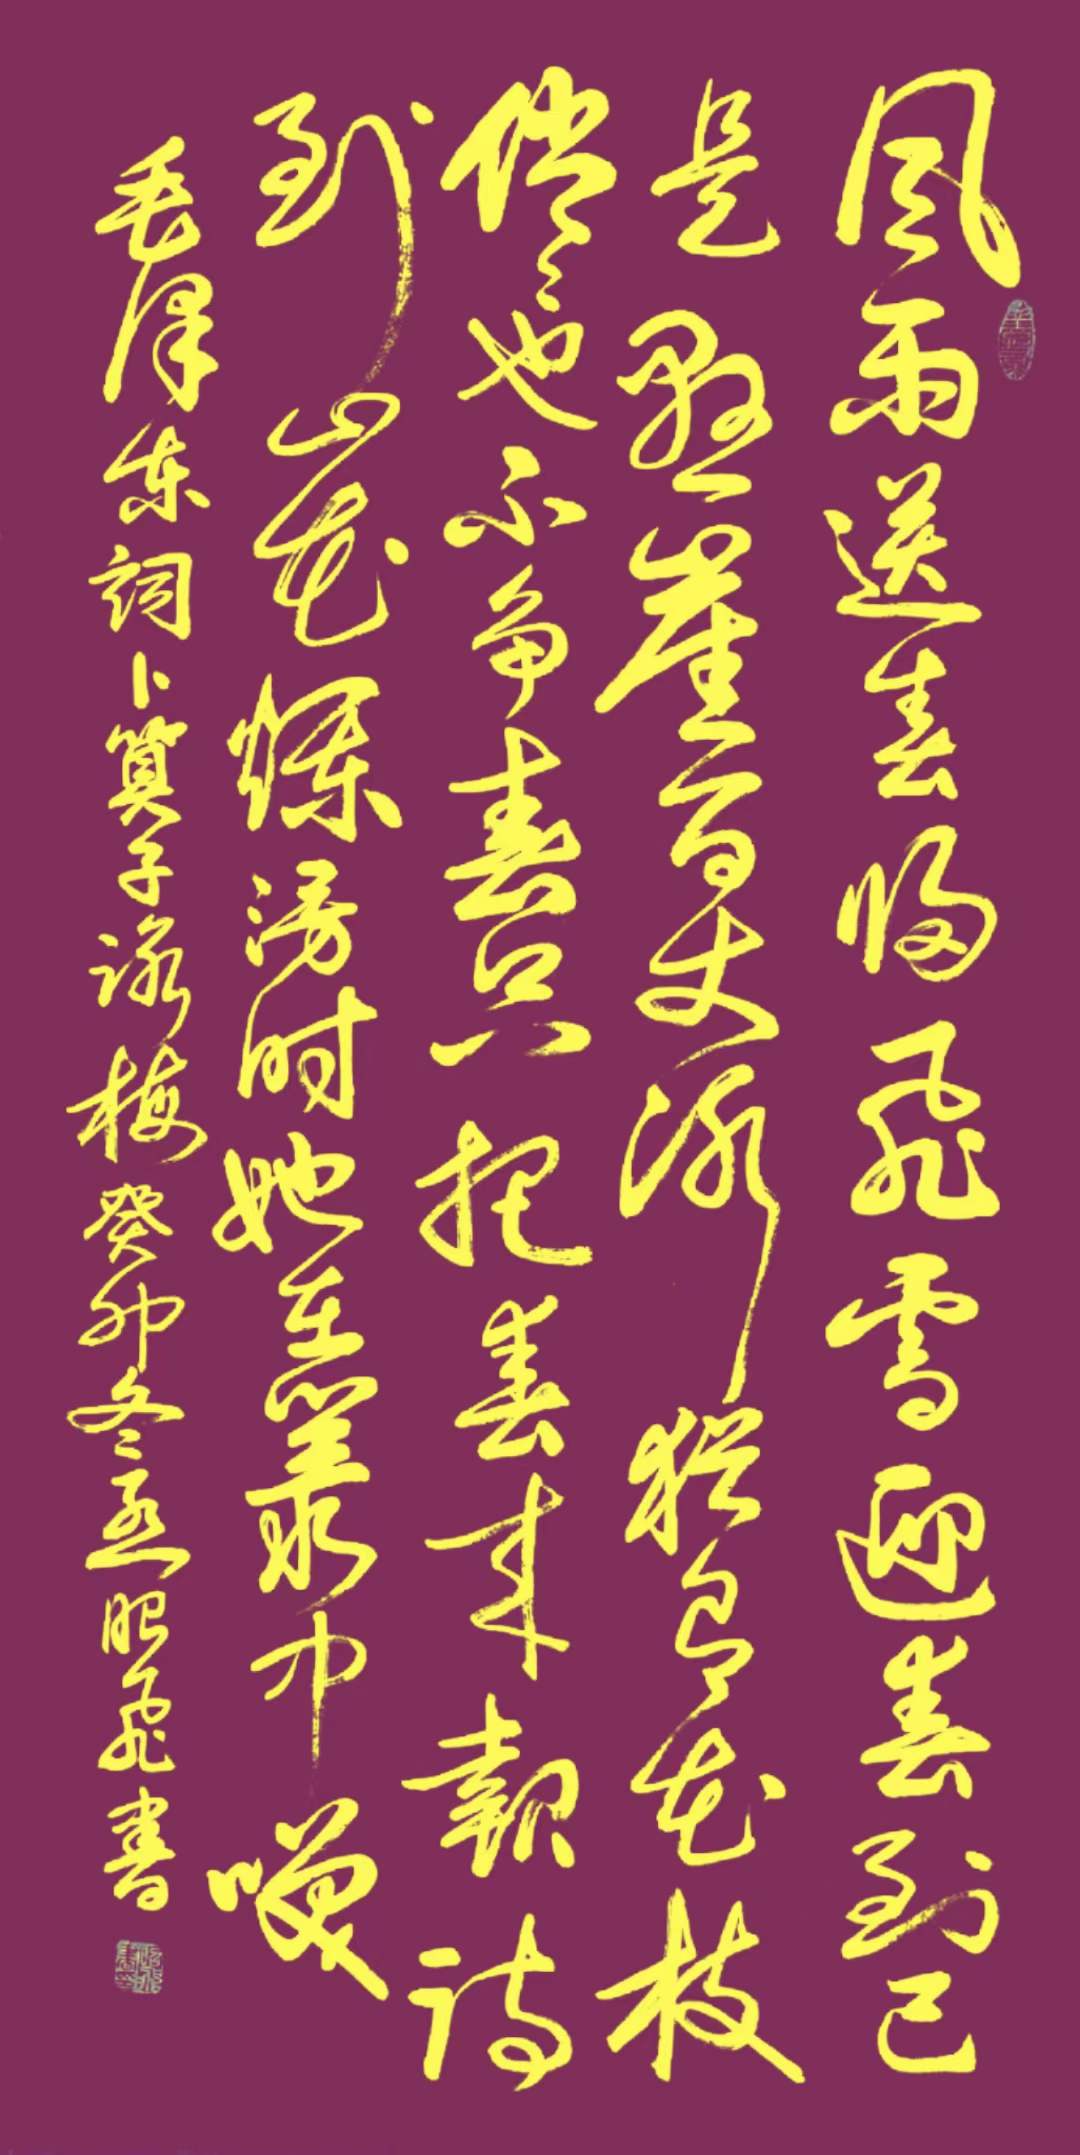 风雨送春归飛雪迎春到已
是悬崖百丈冰犹有花枝
俏〻也不争春只把春来報待
到山花爛漫时她在叢中笑
毛泽东詞卜算子詠梅癸卯冬孟昭飛書